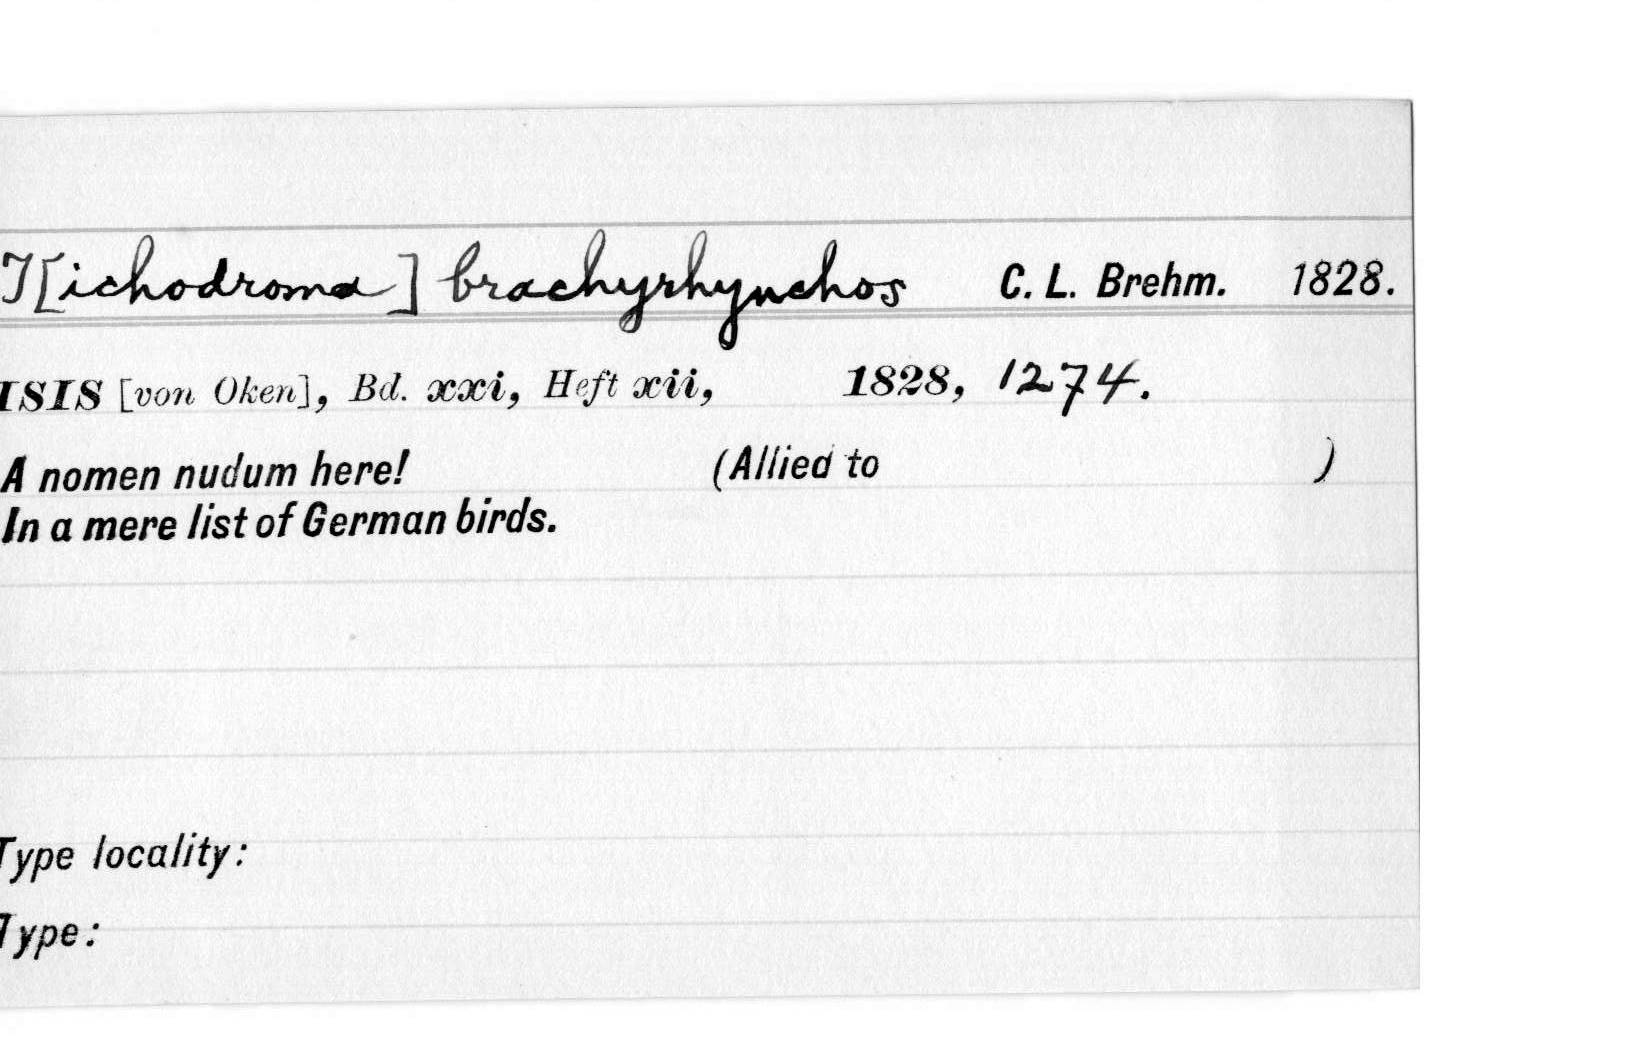 T[ichodroma] brachyrhynchos C. L. Brehm. 1828.
ISIS [von Oken], Bd. xxi, Heft xii, 1828, 1274.
A nomen nudum here! (Allied to )
In a mere list of German birds.
Type locality:
Type: